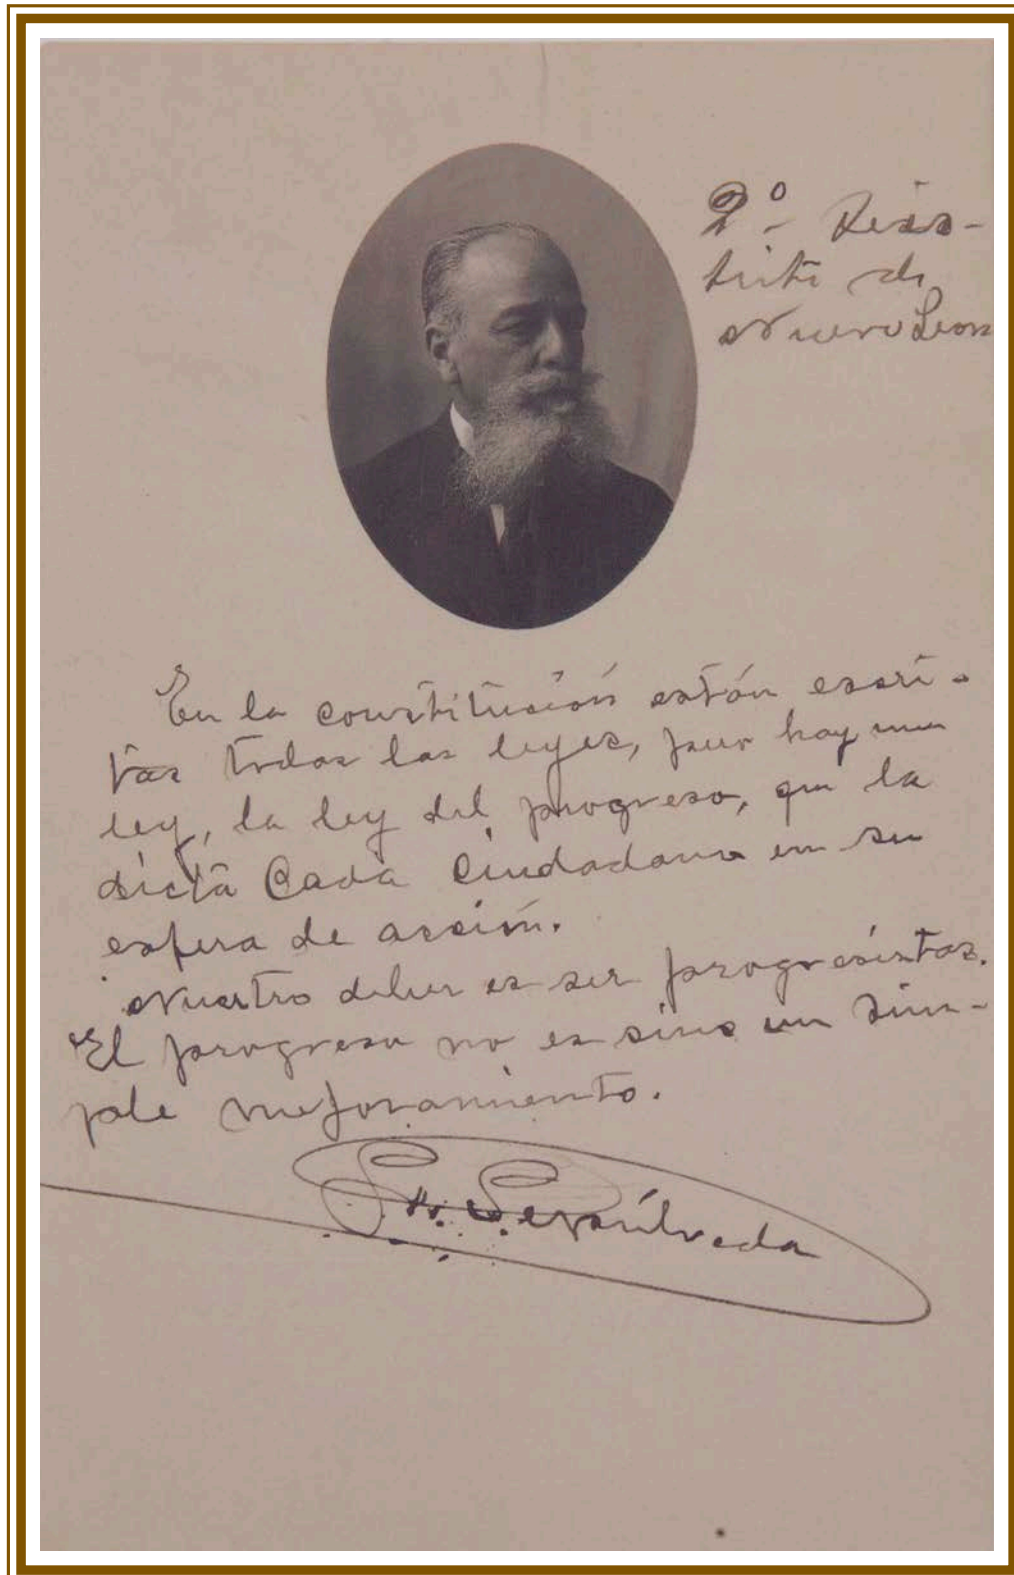 2º Dis-
trito de
Nuevo Leon
En la constitución están escri-
tas todas las leyes, pero hay una
ley, la ley del progreso, que la
dicta Cada Ciudadano en su
esfera de acción.
Nuestro deber es ser progresistas.
El progreso no es sino un sim-
ple mejoramiento.
Sepúlveda